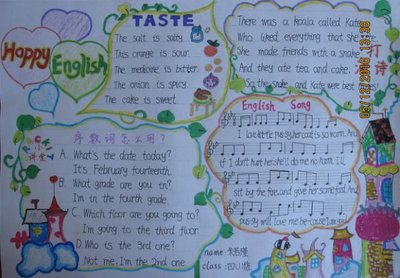 Happy
English
TASTE
The salt is salty.
This orange is sour.
The medicine is bitter.
The onion is spicy.
The cake is sweet.
There was a koala called Kate
Who liked everything that She
She made friends with a snake
And they ate tea and cake,
So the snake and Kate were best
打
诗
序数词怎么用?
讲堂
A. What's the date today?
It's February fourteenth.
B. What grade are you in?
I'm in the fourth grade.
C. Which floor are you going to?
I'm going to the third floor.
D. Who is the 3rd one?
Not me, I'm the 2nd one.
English Song
I love little pussy, her coat is so warm. And
if I don't hurt her she'll do me no harm. I'll
sit by the fire, and give her some food, And
pussy will love me because I am good.
name:
class: